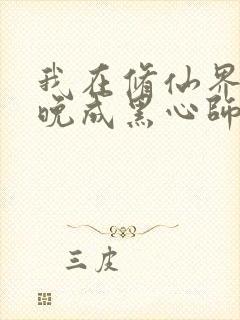 我在修仙界
晚成黑心師
三皮